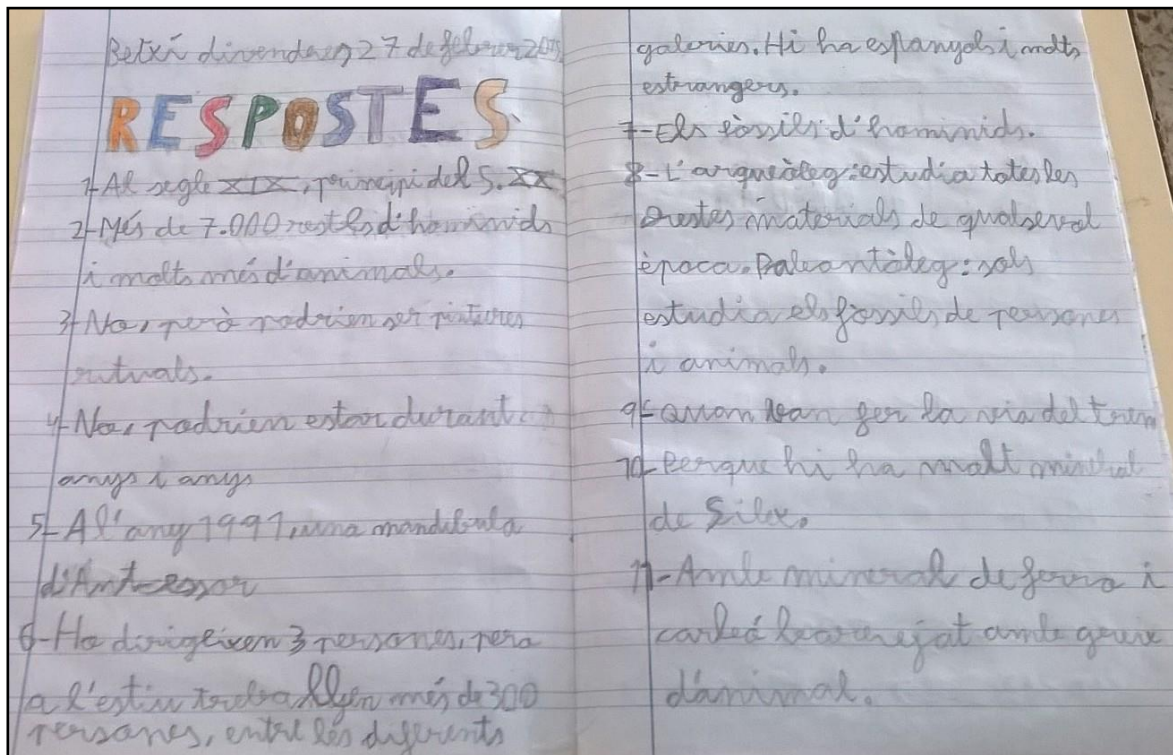 Betxí divendres 27 de febrer 2015
RESPOSTES
1-Al segle XIX, principi del S. XX
2-Més de 7.000 restes d'hominids
i molts més d'animals.
3-No, però podrien ser pintures
rituals.
4-No, podrien estar durant
anys i anys
5-Al'any 1991, una mandibula
d'Antcessor
6-Ho dirigeixen 3 persones, pero
a l'estiu treballen més de 300
persones, entre les diferents
galeries. Hi ha espanyols i molts
estrangers.
7-Els fòssils d'hominids.
8-L'arqueòleg: estudia totes les
restes materials de qualsevol
època. Paleontòleg: sols
estudia els fòssils de persones
i animals.
9-Quan van fer la via del tren
10-Perque hi ha molt mineral
de Silex.
11-Amb mineral de ferro i
carbó barrejat amb greix
d'animal.